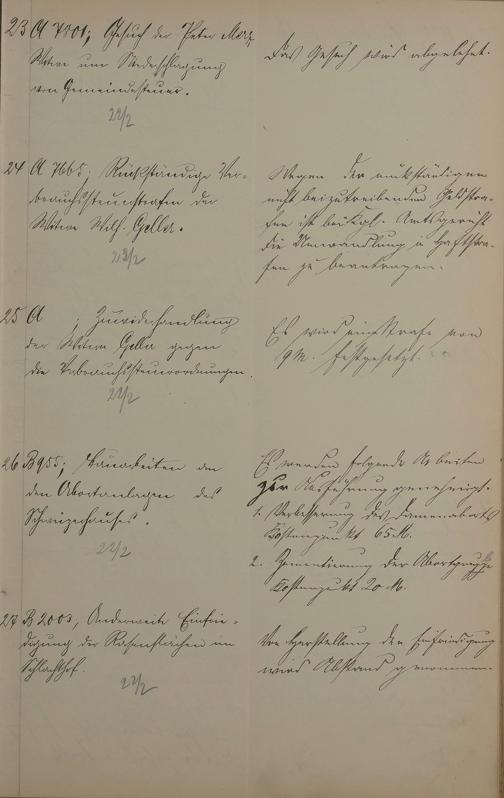 23 A 7201; Gesuch der Peter Marx
Witwe um Niederschlagung
von Gemeindesteuer.
22/2
Das Gesuch wird abgelehnt.
24 A 7665; Rückständige Ver-
brauchssteuerstrafen der
Witwe Wilh. Geller.
22/2
Wegen der rückständigen
nicht beizutreibenden Geldstra-
fen ist bei Kgl. Amtsgericht
die Umwandlung in Haftstra-
fen zu beantragen.
25 A ; Zuwiderhandlung
der Witwe Geller gegen
die Verbrauchssteuerordnungen.
22/2
Es wird eine Strafe von
9 M. festgesetzt.
26 B 955; Bauarbeiten an
den Abortanlagen des
Schweizerhauses.
22/2
Es werden folgende Arbeiten
zur Ausführung genehmigt.
1. Verbesserung des Damenaborts
Kostenpunkt 65 M.
2. Zementierung der Abortgrube
Kostenpunkt 20 M.
27 B 2003; Anderweite Einfrie-
digung der Rasenflächen im
Schlachthof.
22/2
Von Herstellung der Einfriedigung
wird Abstand genommen.